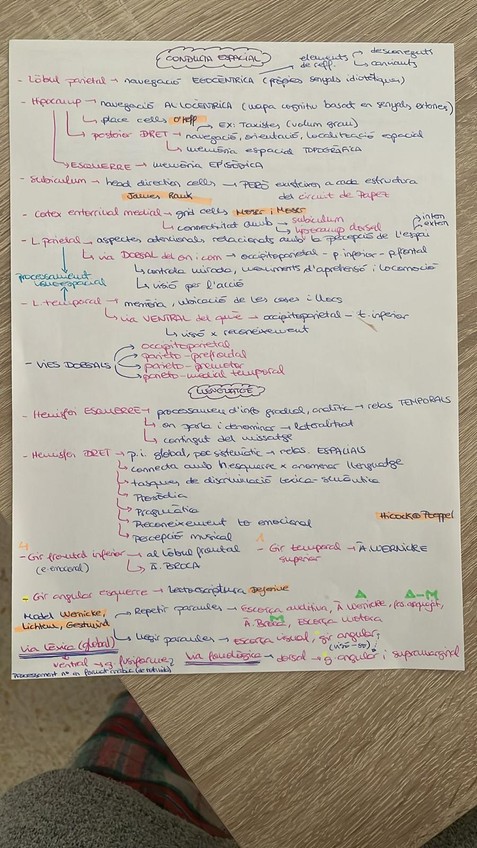 CONDUCTA ESPACIAL
elements de ref. → desconeguts
→ canviants
- Lòbul parietal → navegació EGOCÈNTRICA (pròpies senyals idiotètiques)
- Hipocamp → navegació AL·LOCÈNTRICA (mapa cognitiu basat en senyals externes)
↳ place cells O'Keefe Ex: Taxistes (volum grau)
↳ posterior DRET → navegació, orientació, localització espacial
↳ memòria espacial TOPOGRÀFICA
↳ ESQUERRE → memòria EPISÒDICA
- Subiculum → head direction cells → PERÒ existeixen a cada estructura
James Rank del circuit de Papez
- Cortex entorrinal medial → grid cells Moser i Moser
↳ connectivitat amb → subiculum
↳ hipocamp dorsal
intern
extern
- L. parietal → aspectes atencionals relacionats amb la percepció de l'espai
↳ via DORSAL del on i com → occipitoparietal - p. inferior - p. frontal
processament visuoespacial
↳ controla mirada, moviments d'aprehensió i locomoció
↳ visió per l'acció
- L. temporal → memòria, ubicació de les coses i llocs
↳ via VENTRAL del què → occipitoparietal - t. inferior
↳ visió x reconeixement
- VIES DORSALS
occipitoparietal
parieto-prefrontal
parieto-premotor
parieto-medial temporal
LLENGUATGE
- Hemisferi ESQUERRE → processament d'info gradual, analític → relas TEMPORALS
↳ on parla i denominar → lateralitat
↳ contingut del missatge
- Hemisferi DRET → p.i. global, poc sistemàtic → relas. ESPACIALS
↳ connecta amb h. esquerre x anomenar llenguatge
↳ tasques de discriminació lèxica-semàntica
↳ Prosòdia
↳ Pragmàtica
↳ Reconeixement to emocional
↳ percepció musical
Hickok & Poeppel
- Gir frontal inferior → al lòbul frontal
(e. motora) ↳ À. BROCA
- Gir temporal superior → À. WERNICKE
- Gir angular esquerre → lectoescriptura Dejerine
Model Wernicke, Lichteim, Geshwind
→ Repetir paraules → Escorça auditiva, À Wernicke, fas. arquejat,
A A-M
À. Broca, Escorça motora
M
→ Llegir paraules → Escorça visual, gir angular
(visió-so)
via lèxica (global)
ventral → g. fusiforme
via fonològica → dorsal → g. angular i supramarginal